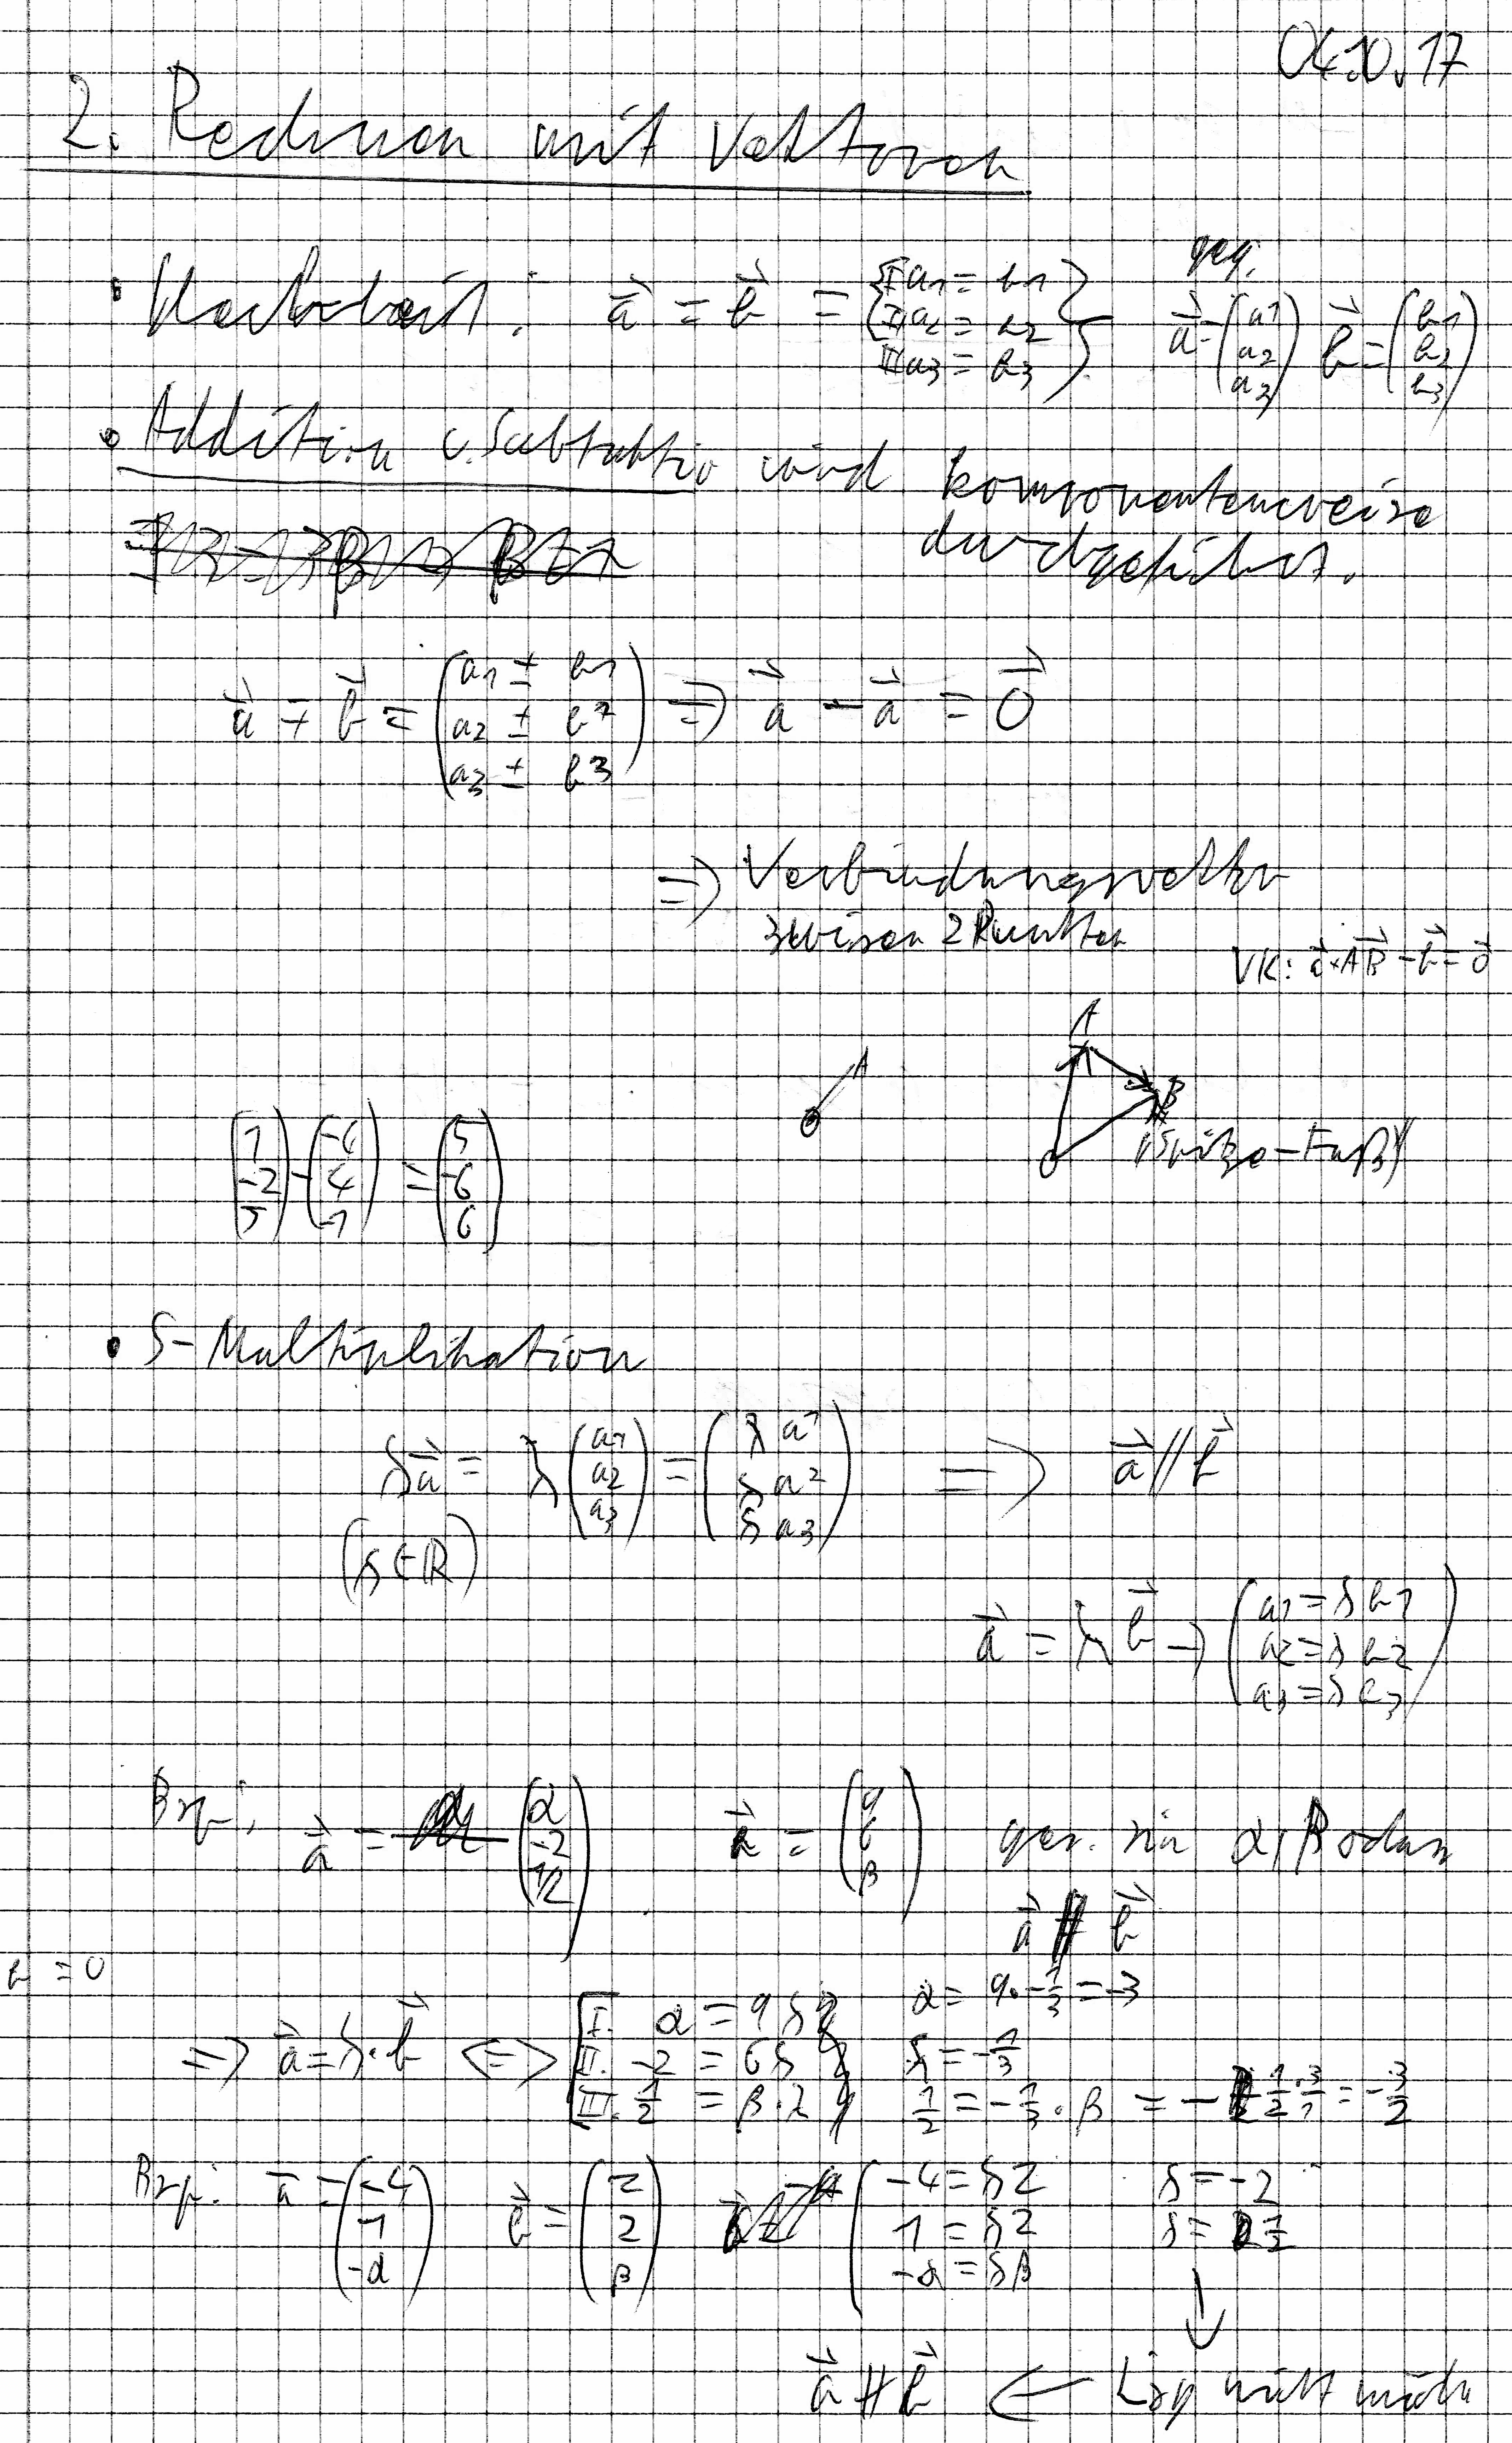 04.10.17
2. Rechnen mit Vektoren
a⃗ = b⃗ = { I a1 = b1
II a2 = b2
III a3 = b3 }
geg.
a⃗ = (a1 a2 a3) b⃗ = (b1 b2 b3)
• Addition u. Subtraktio wird komponentenweise
durchgeführt.
a⃗ ∓ b⃗ = (a1 ± b1
a2 ± b2
a3 ± b3) => a⃗ - a⃗ = 0⃗
=> Verbindungsvektor
zwisen 2 Punkten
VK: a⃗ + AB⃗ - b⃗ = 0⃗
A
A
B
(Spitze-Fuß)
(1 -2 5) - (-4 4 -1) = (5 -6 6)
• S-Multiplikation
λa⃗ = λ (a1 a2 a3) = (λ a1 λ a2 λ a3) => a⃗ // b⃗
(λ ∈ ℝ)
a⃗ = λ b⃗ -> (a1 = λ b1
a2 = λ b2
a3 = λ b3)
Bsp: a⃗ = (α -2 1/2) b⃗ = (9 6 β) ges. sin α, β sodass
a⃗ // b⃗
b = 0
α = 9 · -1/3 = -3
=> a⃗ = λ · b⃗ <=> [ I. α = 9 λ
II. -2 = 6 λ λ = -1/3
III. 1/2 = β · λ 1/2 = -1/3 · β = - 1/2 · 3/1 = -3/2
Bsp: a = (-4 1 -α) b⃗ = (2 2 β) ( -4 = λ2 λ = -2
1 = λ2 λ = 1/2
-α = λβ
a⃗ ∦ b⃗ <- Lsg nicht mögli